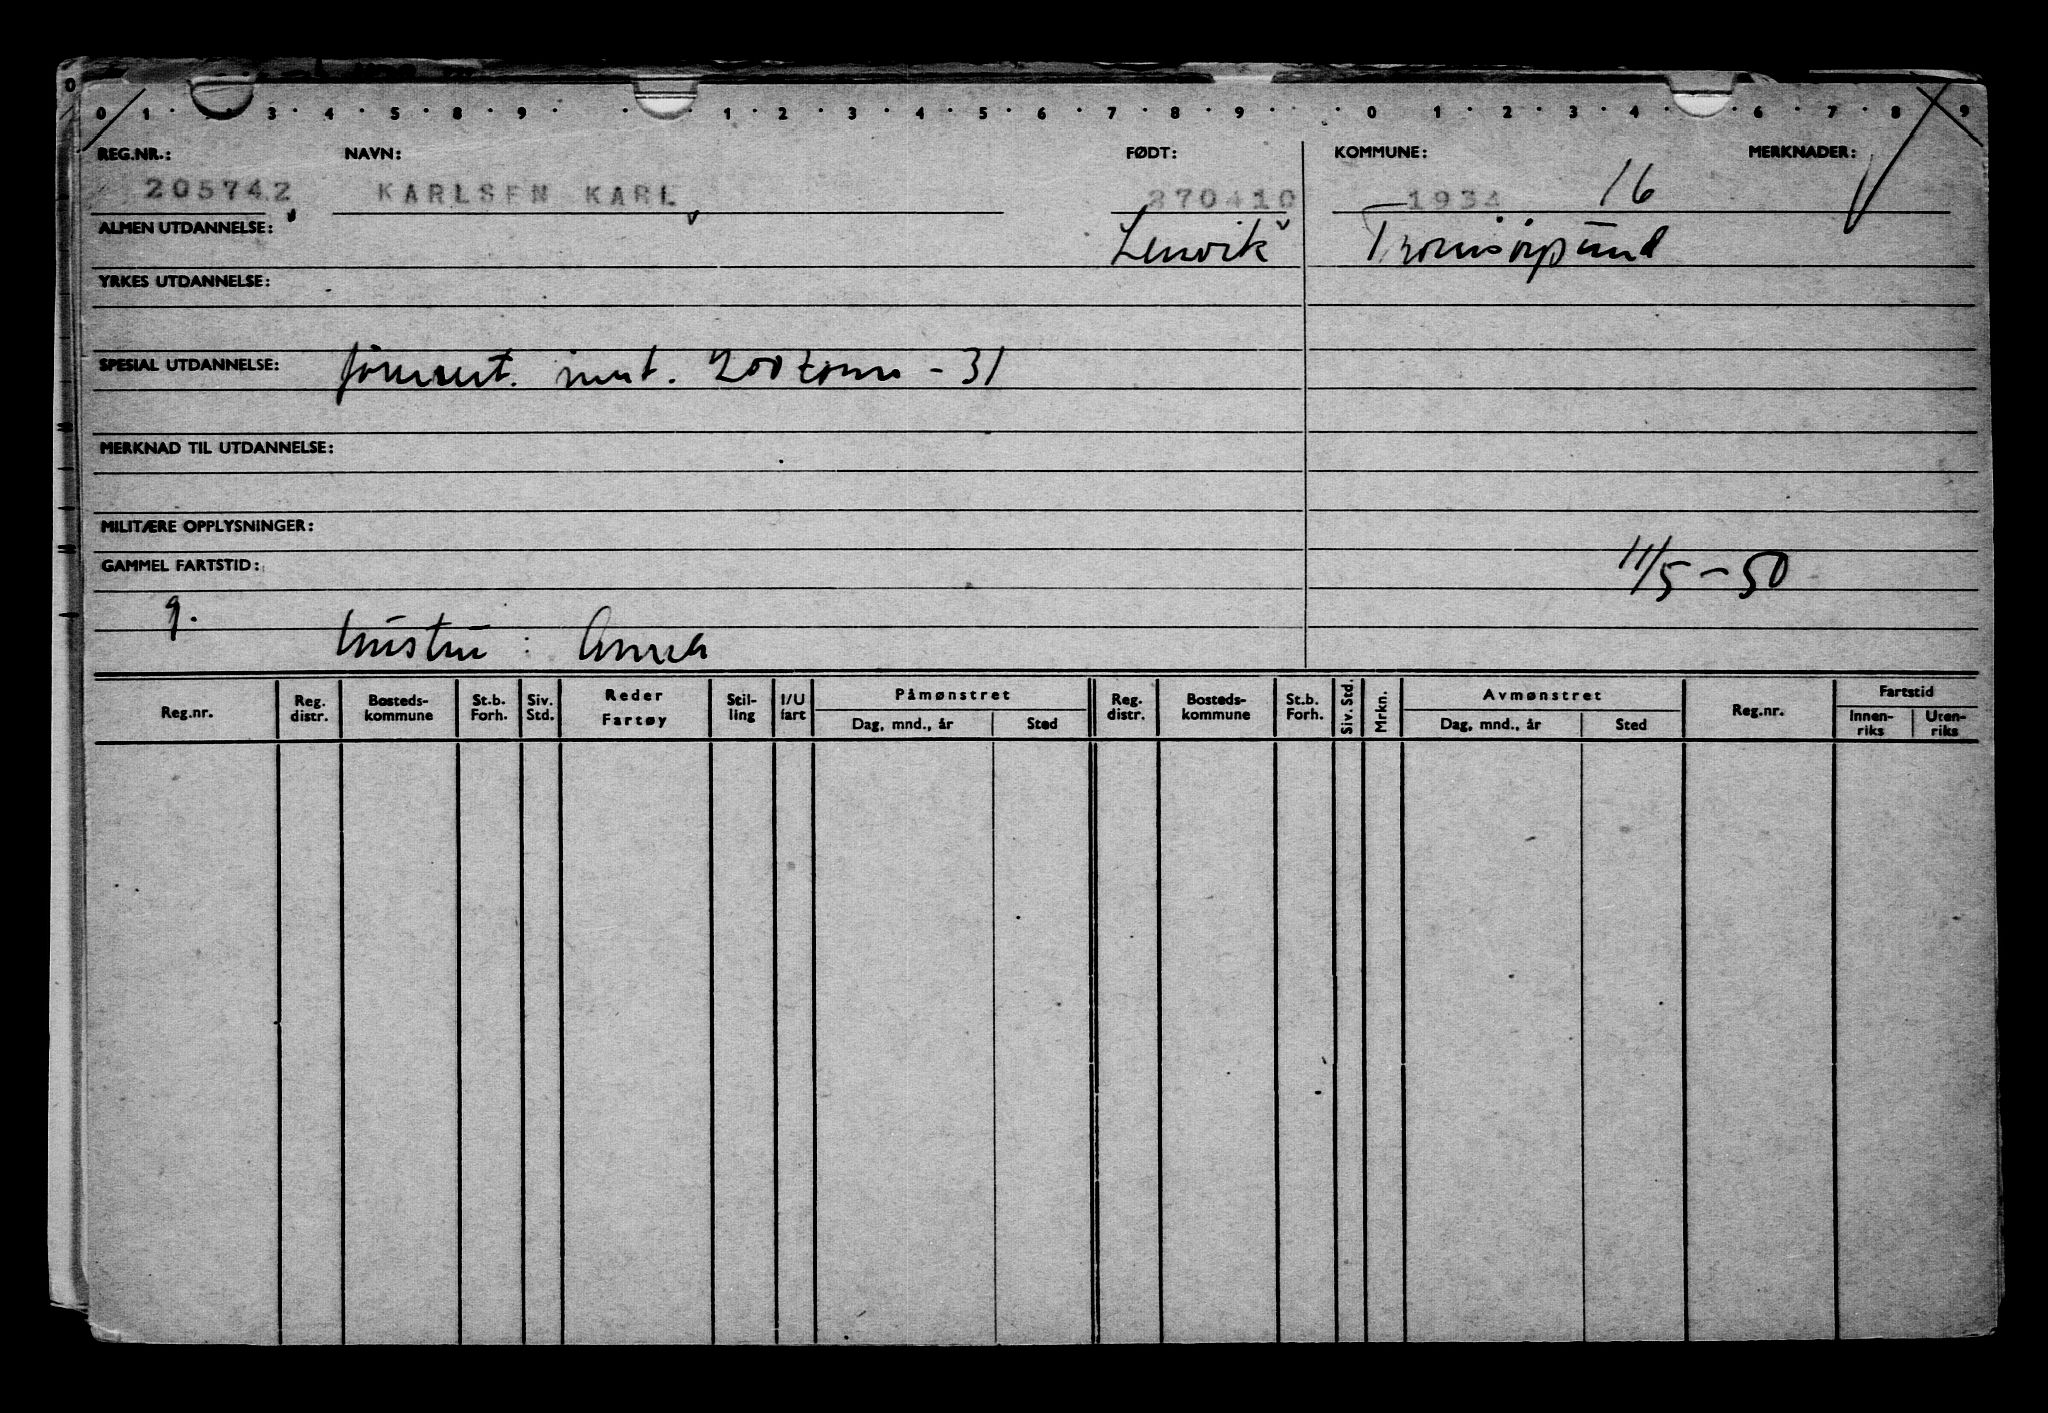 0 1 3 4 5 8 9 1 2 3 4 5 6 7 8 9 0 1 2 3 4 6 7 8 9
REG.NR.: NAVN: FØDT: KOMMUNE: MERKNADER:
205742 KARLSEN KARL 270410 1934 16
ALMEN UTDANNELSE: Lenvik Tromsøysund
YRKES UTDANNELSE:
SPESIAL UTDANNELSE: 200 tonns - 31
MERKNAD TIL UTDANNELSE:
MILITÆRE OPPLYSNINGER:
GAMMEL FARTSTID: 11/5 - 50
g. hustru : Anna
Reg.nr. Reg. distr. Bosteds-kommune St.b. Forh. Siv. Std. Reder Fartøy Stil-ling I/U fart Påmønstret Dag, mnd., år Sted Reg. distr. Bosteds-kommune St.b. Forh. Siv. Std. Mrkn. Avmønstret Dag, mnd., år Sted Reg.nr. Fartstid Innen-riks Uten-riks